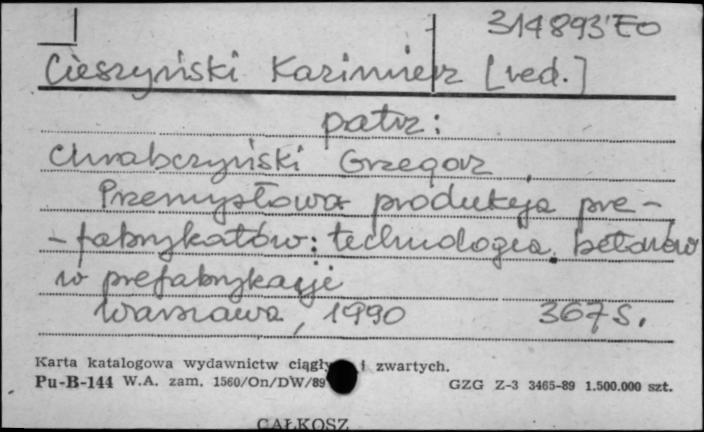 314893'EO
Cieszyński Kazimierz [red.]
patrz:
Chrabczyński Grzegorz
Przemysłowa produkcja pre-
- fabrykatów: technologia betonów
w prefabrykacji
Warszawa, 1990 367 s.
Karta katalogowa wydawnictw ciągły i zwartych.
Pu-B-144 W.A. zam. 1560/On/DW/89 GZG Z-3 3465-89 1.500.000 szt.
CAŁKOSZ